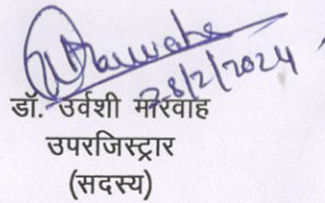 28/2/2024
डॉ. उर्वशी मारवाह
उपरजिस्ट्रार
(सदस्य)